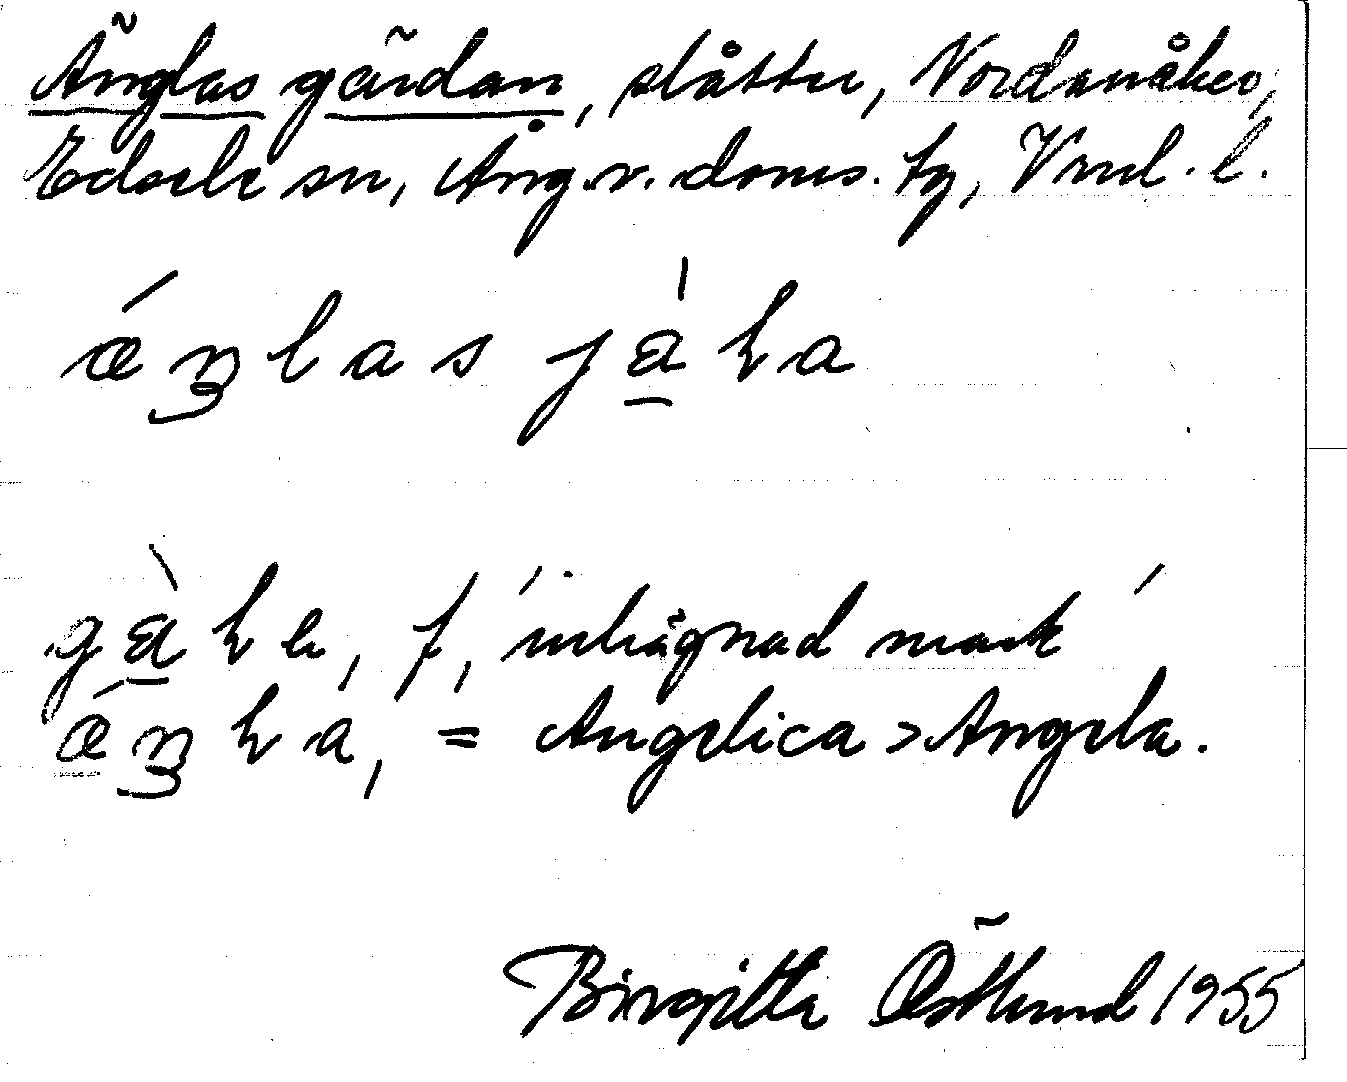 Änglas gärdan, slåtter, Nordanåker,
Edsele sn, Ång.v. doms. tg, Vnul. l.
ǽŋlas jàha
gàhe, f, 'inhägnad mark'
ǽŋha, = Angelica > Angela.
Birgitta Östlund 1955